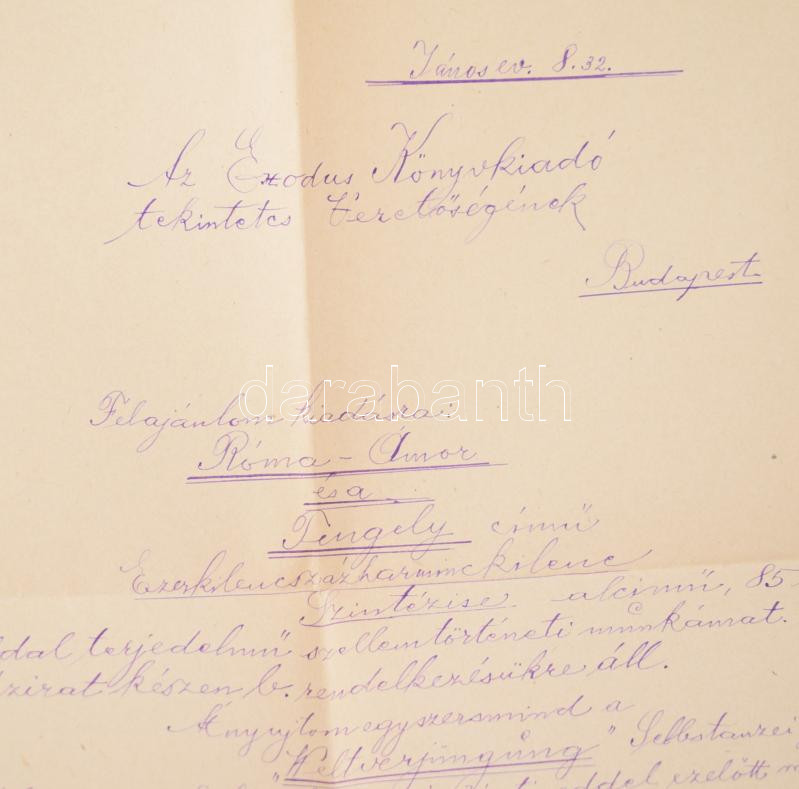 János ev. 8.32.
Az Exodus Könyvkiadó
tekintetes Vezetőségének
Budapest
darabanth
Felajánlom kiadásra:
Róma - Ámor
és a
Tengely című
Ezerkilencszázharminckilenc
Szintézise alcimű, 85
ldal terjedelmű szellemtörténeti munkámat.
zirat készen b. rendelkezésükre áll.
Átnyujtom egyszersmind a
"Weltverjüngung" Selbstanzei
ezelőtt